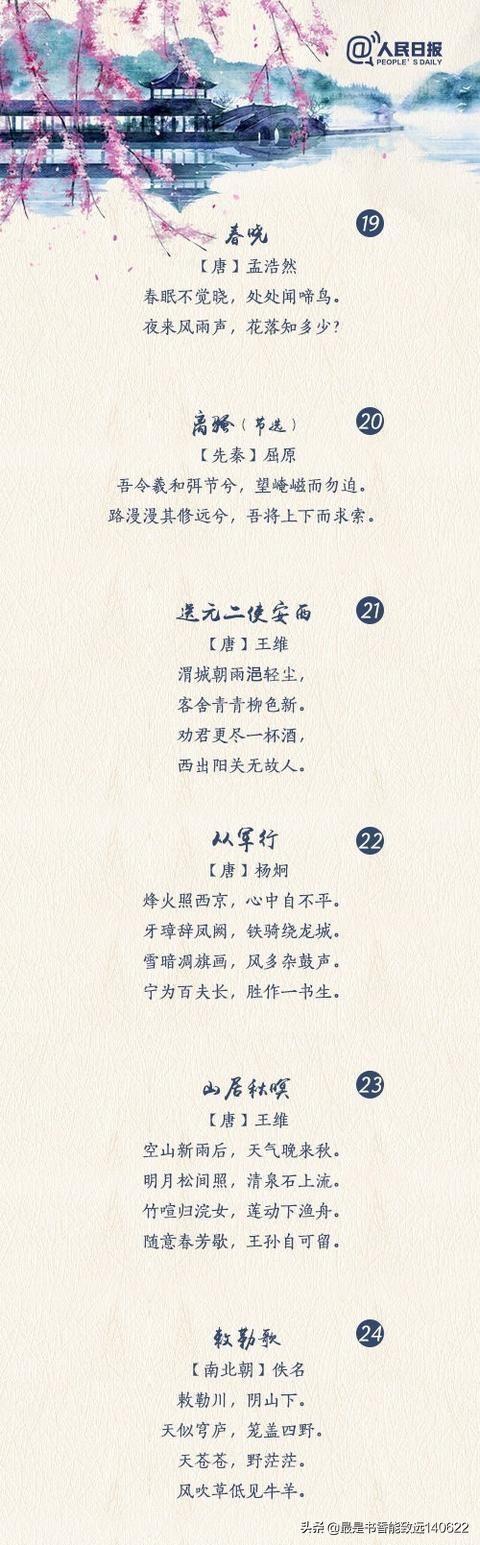 @人民日报
PEOPLE'S DAILY
19
春晓
【唐】孟浩然
春眠不觉晓，处处闻啼鸟。
夜来风雨声，花落知多少?
20
离骚（节选）
【先秦】屈原
吾令羲和弭节兮，望崦嵫而勿迫。
路漫漫其修远兮，吾将上下而求索。
21
送元二使安西
【唐】王维
渭城朝雨浥轻尘，
客舍青青柳色新。
劝君更尽一杯酒，
西出阳关无故人。
22
从军行
【唐】杨炯
烽火照西京，心中自不平。
牙璋辞凤阙，铁骑绕龙城。
雪暗凋旗画，风多杂鼓声。
宁为百夫长，胜作一书生。
23
山居秋暝
【唐】王维
空山新雨后，天气晚来秋。
明月松间照，清泉石上流。
竹喧归浣女，莲动下渔舟。
随意春芳歇，王孙自可留。
24
敕勒歌
【南北朝】佚名
敕勒川，阴山下。
天似穹庐，笼盖四野。
天苍苍，野茫茫。
风吹草低见牛羊。
头条 @最是书香能致远140622